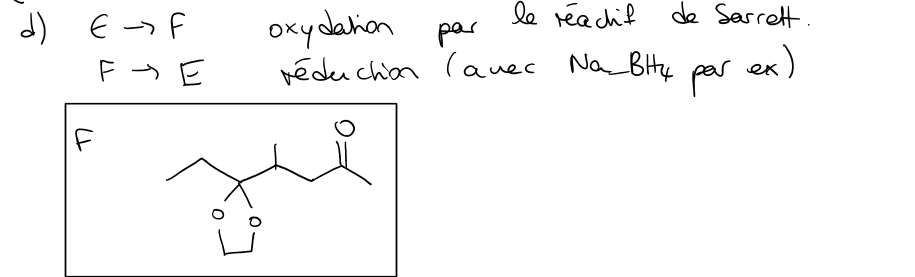 d) E → F oxydation par le réactif de Sarrett.
F → E réduction (avec Na_BH4 par ex)
F
O
O O